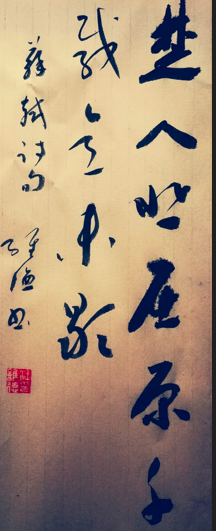 楚人悲屈原千
载意未歇
苏轼诗句